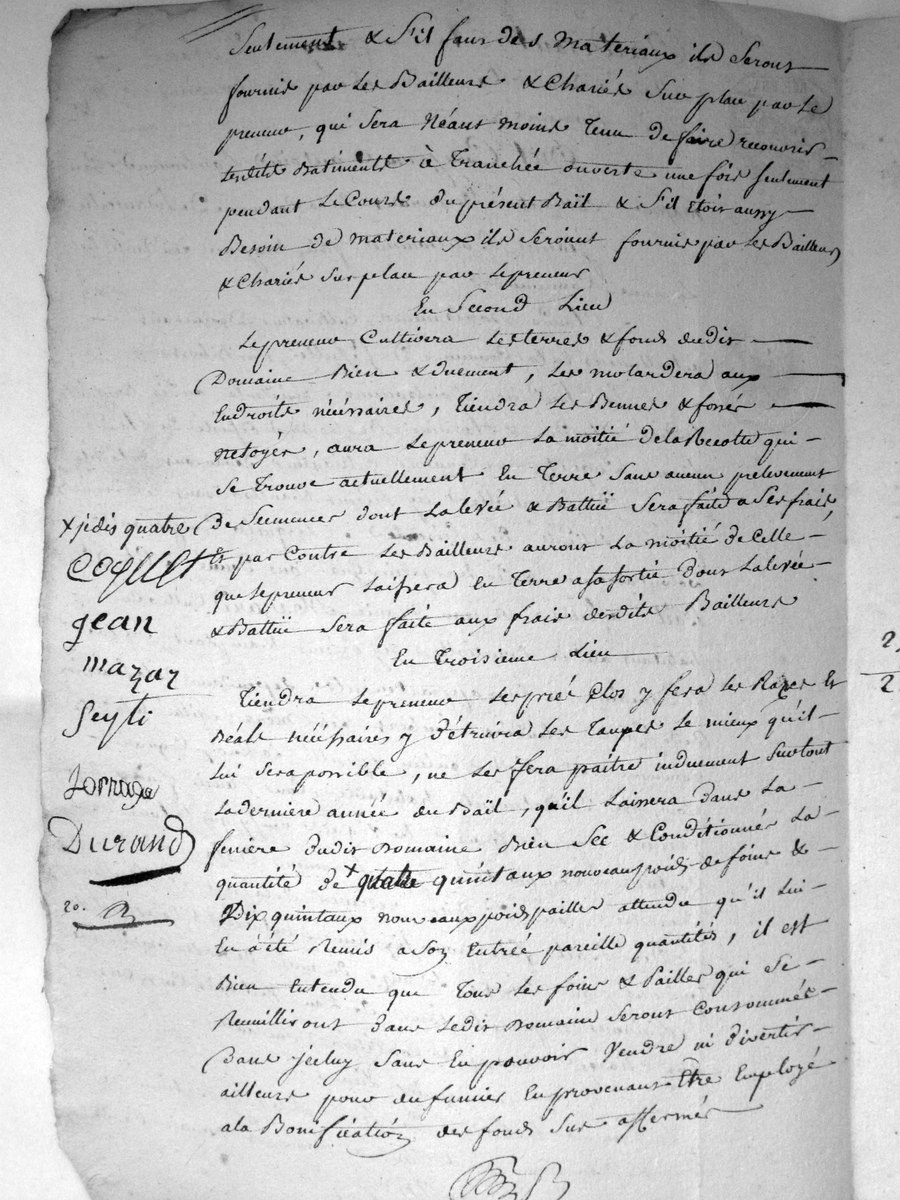 Seulement & S'il faut des materiaux ils Seront
fournis par Les Bailleurs & Chariés Sur plau par Le
preneur, qui Sera Néant moins Tenu de faire recouvrir
Lesdits Batiments à Tranchée ouverte une fois Seulement
pendant Le Cours du présent Bail & S'il Etoit aussy
Besoin de materiaux ils Seronnt fournis par Les Bailleurs
& Chariés Sur plau par Lepreneur
En Second Lieu
Lepreneur Cultivera Les terres & fonds dudit
Domaine Bien & duement, Les motardera aux
Endroits nécéssaires, Tiendra Les Bennes & fossés
netoyés, aura Lepreneur La moitié de la Recolte qui
Se Trouve actuellement En Terre Sans aucun prelevement
de Semences dont La levée & Battüe Sera faite a Ses frais,
Et par Contre Les Bailleurs auront La moitié de Celle
que Lepreneur Laissera En Terre a sa Sortie dont La levée
& Battüe Sera faite aux frais desdits Bailleurs
En Troisieme Lieu
Tiendra Lepreneur Les prés Clos y fera Les Razes Et
Beals nécéssaires y détruira Les Taupes Le mieux qu'il
Lui Sera possible, ne Les fera paitre induement Surtout
La derniére année du Bail, qu'il Laissera dans La
feniére dudit Domaine Bien Sec & Conditionnés La
quantité de + quatre quintaux nouveaux poids de foins &
Dix quintaux nouveaux poids pailles attendu qu'il Lui
En a été Remis a Son Entrée pareille quantités, il est
Bien Entendu que Tous Les foins & Pailles qui Se
Reuilliront dans Ledit Domaine Seront Consommés
Dans jceluy Sans En pouvoir Vendre ni divertir
ailleurs pour du fumier En provenant Etre Employé
a la Bonification des fonds Sus affermés
+ je dis quatre
Coquet
jean
mazaz
Seyti
Durand
20.
2
2